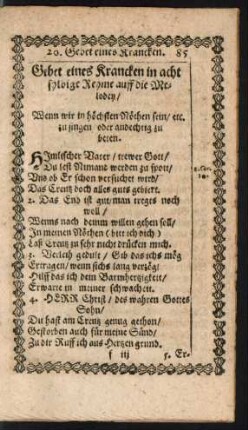 20. Gebet eines Krancken. 85
Gebet eines Krancken in acht
sylbige Reyme auff die Me-
lodey/
Wenn wir in höchsten Nöthen sein/ etc.
zu singen oder andechtig zu
beten.
HImlischer Vater/ trewer Gott/
Du lest Nimand werden zu spott/
Vnd ob Er schon versuchet wird/
Das Creutz doch alles guts gebiert.
2. Das End ist gut/ man trages noch
woll/
Wenns nach deinm willen gehen soll/
In meinen Nöthen (bitt ich dich)
Laß Creutz zu sehr nicht drücken mich.
3. Verleih gedult/ Gib das ichs mög
Ertragen/ wenn sichs lang verzög/
Hilff das ich dein Barmhertzigkeit/
Erwarte in meiner schwacheit.
4. HERR Christ/ des wahren Gottes
Sohn/
Du hast am Creutz genug gethon/
Gestorben auch für meine Sünd/
Zu dir Ruff ich aus Hertzen grund.
f iij 5. Er-